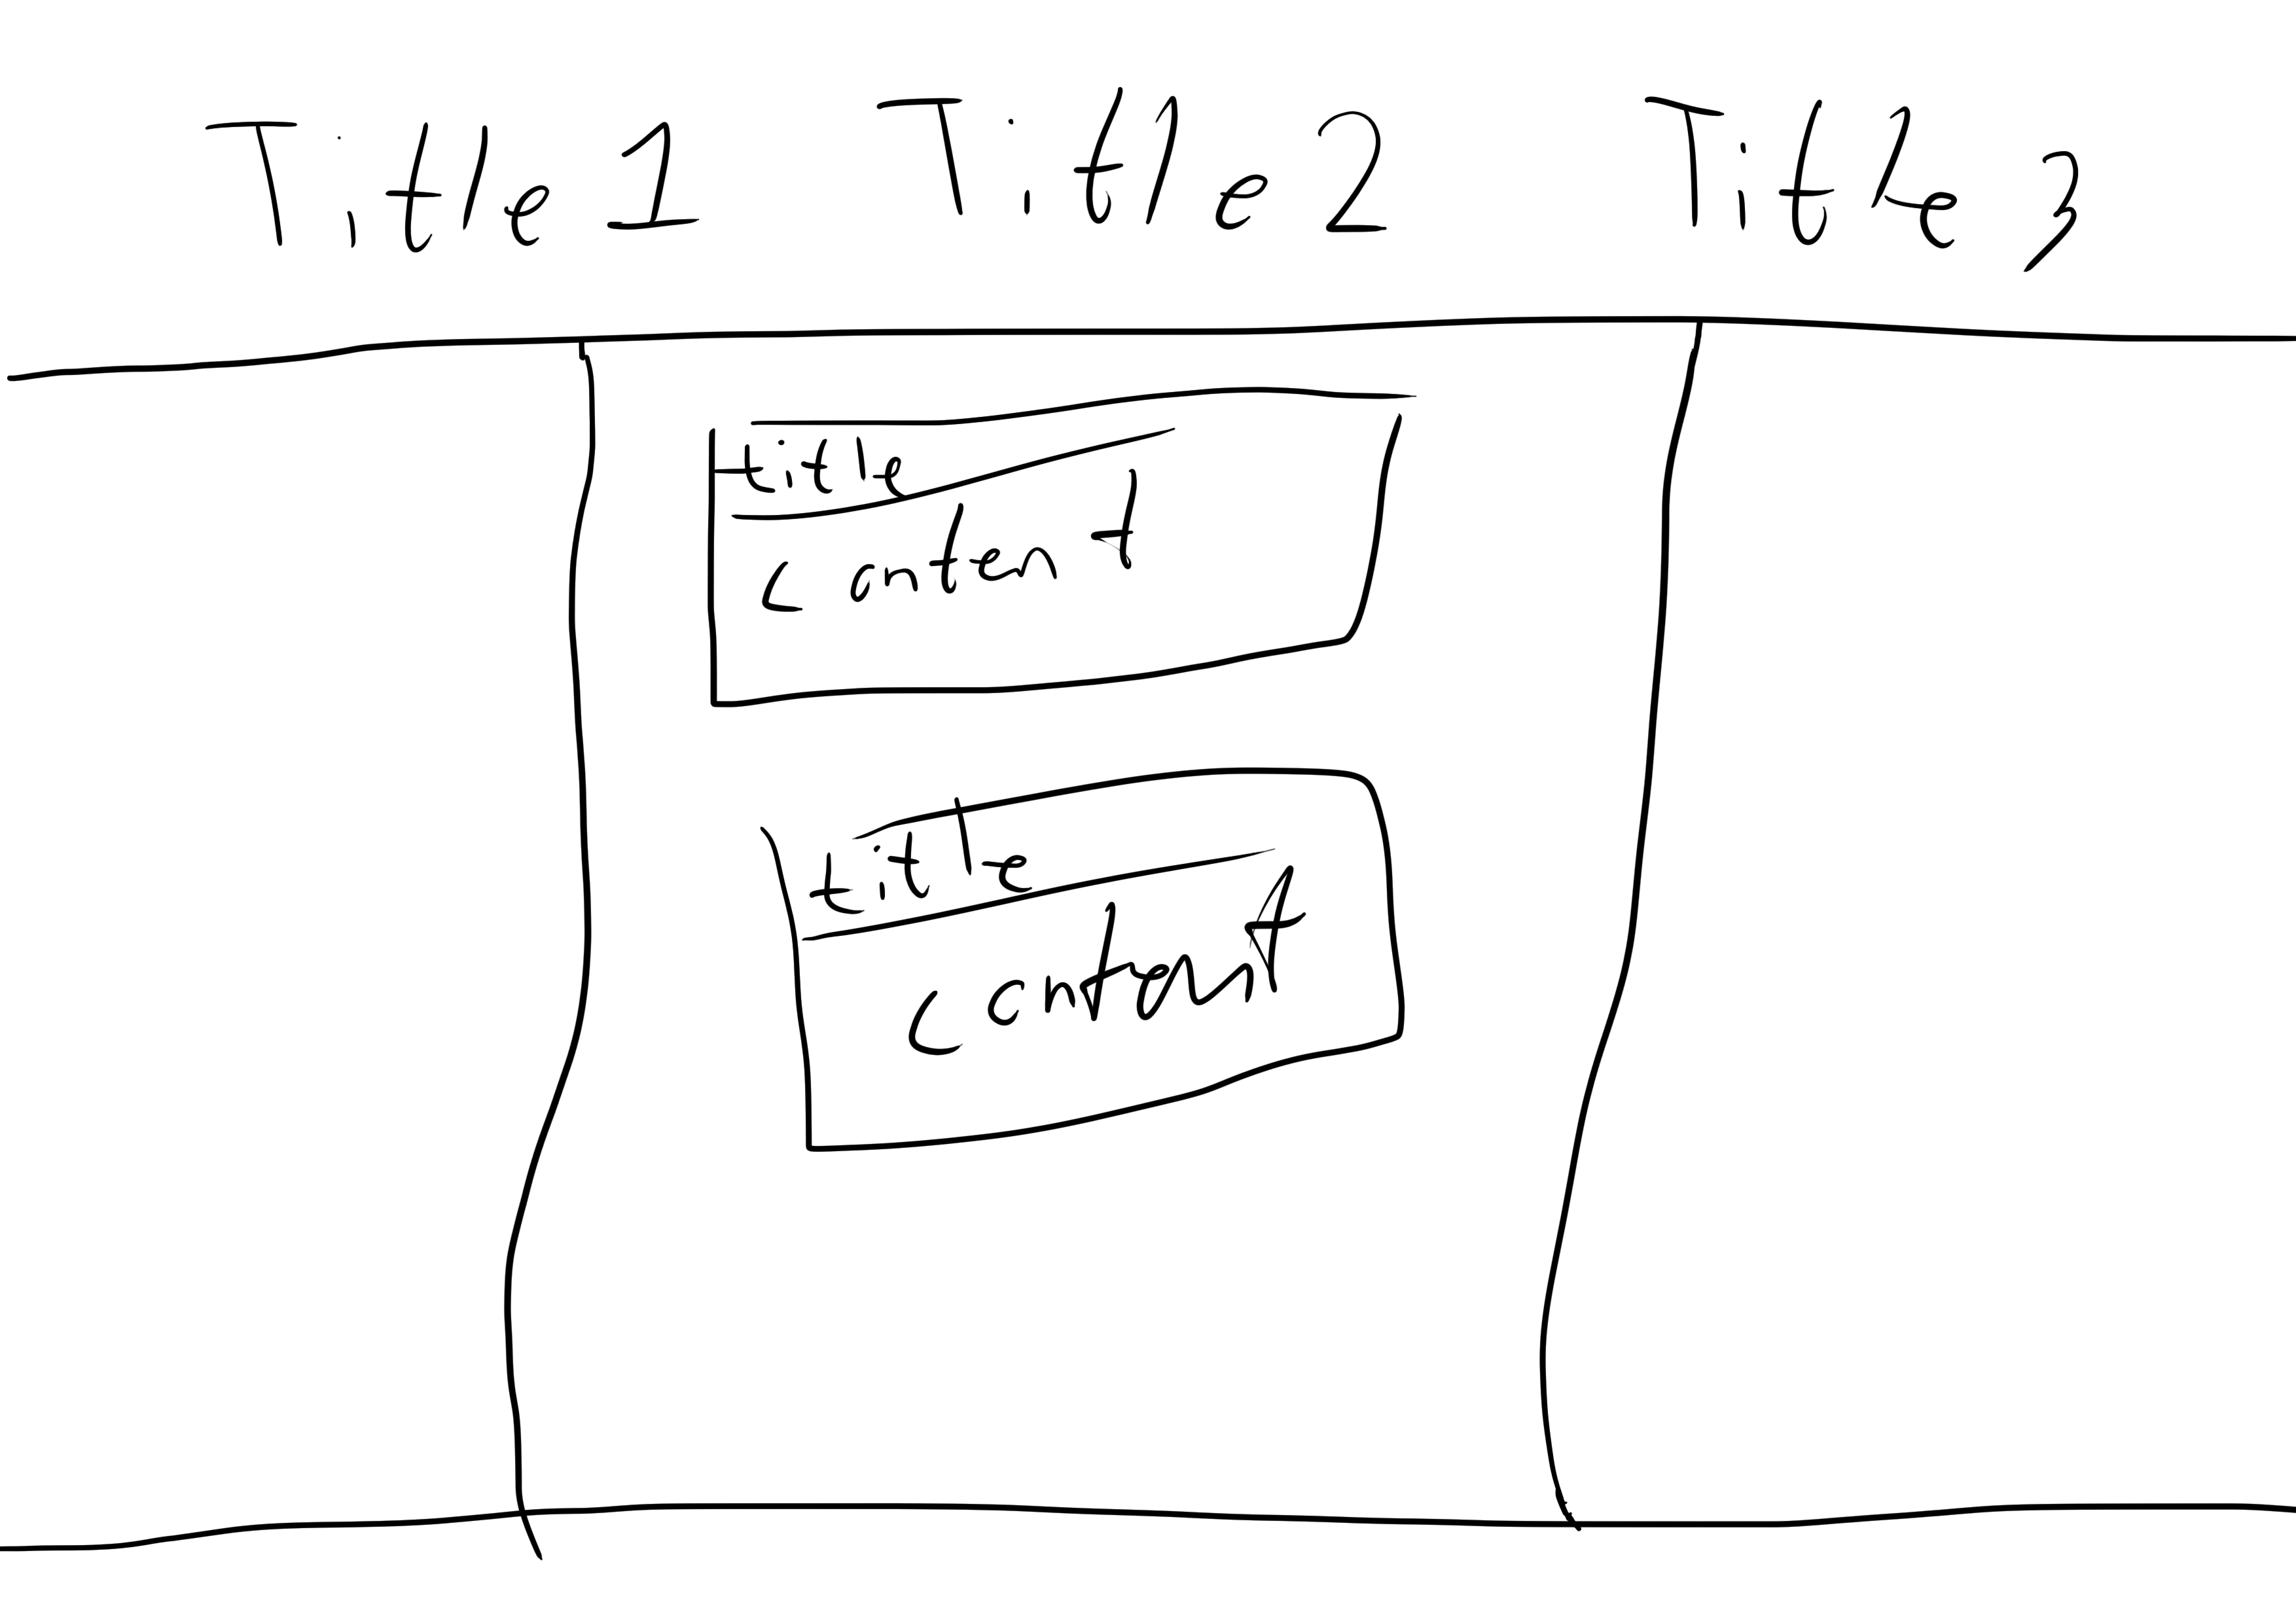 Title 1 Title 2 Title 3
title
content
title
content